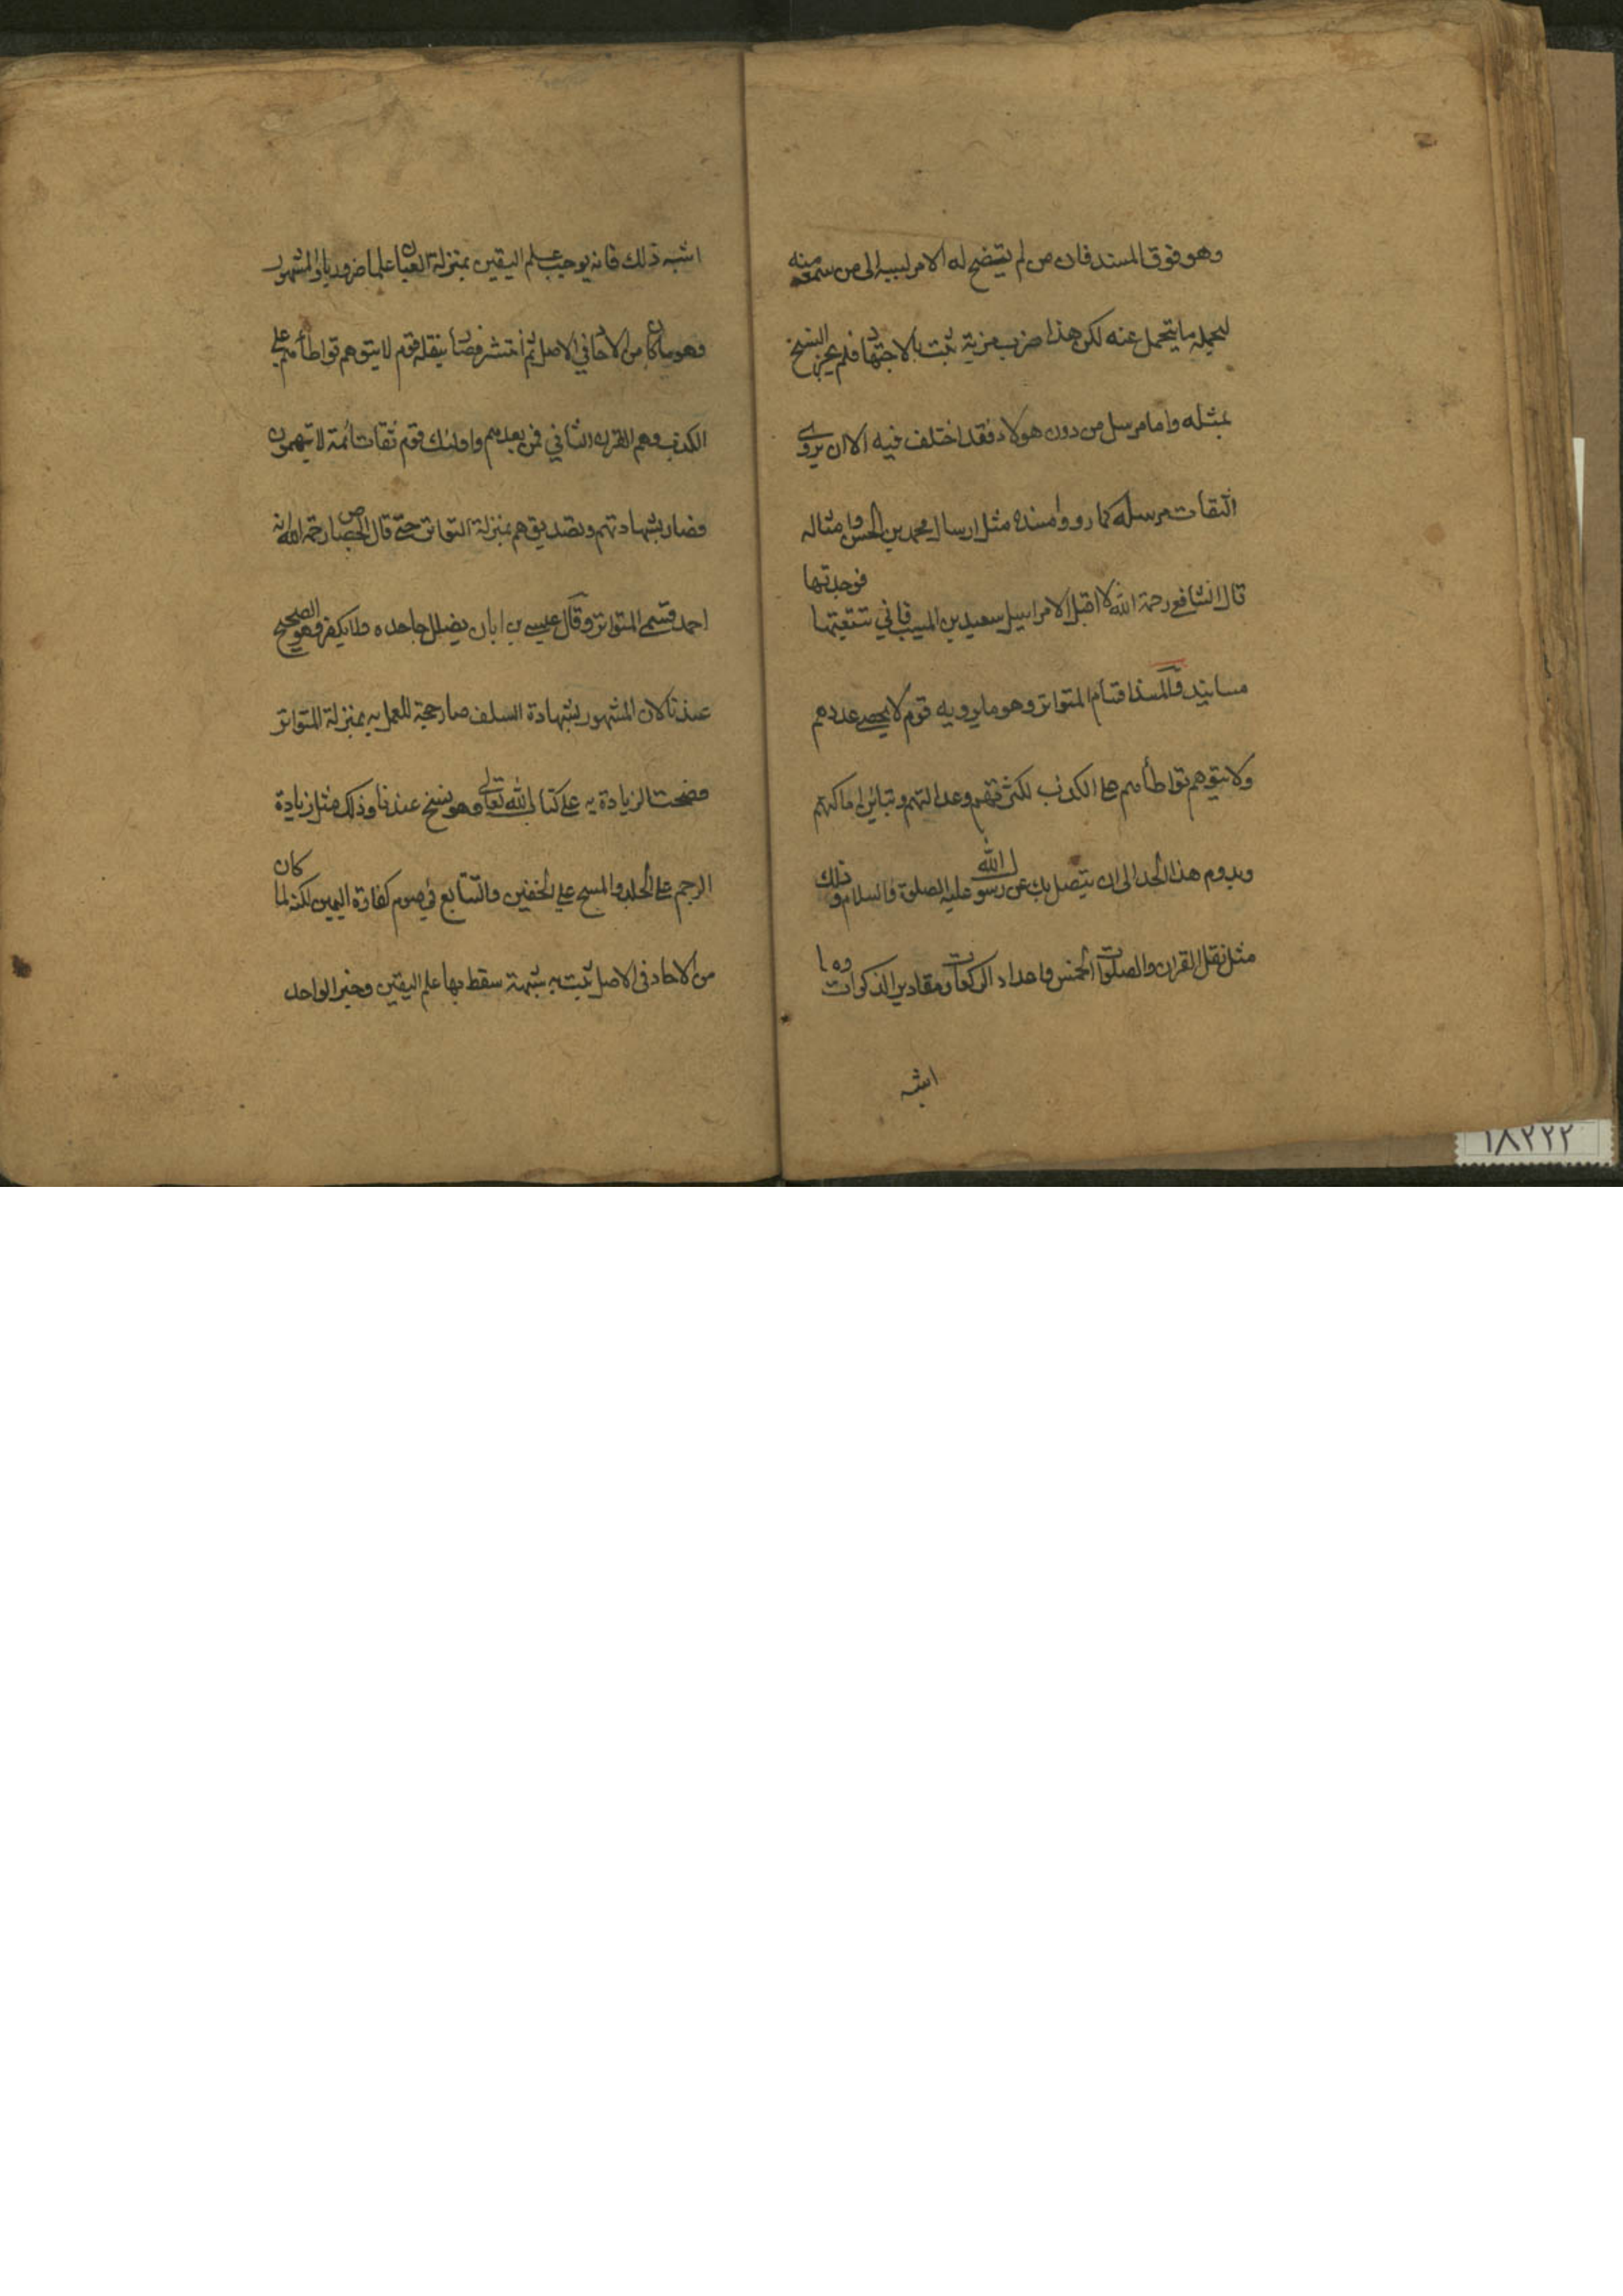 وهو فوق المسند فان من لم يتضح له الامر نسبه الى من سمعه منه
ليحمله ما يتحمل عنه لكن هذا ضرب مزية تثبت بالاجتهاد فلم يجز النسخ
بمثله واما مرسل من دون هولاء فقد اختلف فيه الا ان يروى
الثقات مرسله كما رووا مسنده مثل ارسال محمد بن الحسن وامثاله
قال الشافع رحمة الله لا اقبل الا مراسيل سعيد بن المسيب فاني تتبعتها فوجدتها
مسانيد والمسند اقسام المتواتر وهو ما يرويه قوم لا يحصى عددهم
ولا يتوهم تواطأهم على الكذب لكثرتهم وعدالتهم وتباين اماكنهم
ويدوم هذا الحد الى ان يتصل بك عن رسول الله عليه الصلوة والسلام وذلك
مثل نقل القران والصلوات الخمس واعداد الركعات ومقادير الزكوات وما
اشبه
اشبه ذلك فانه يوجب علم اليقين بمنزلة العيان علما ضروريا والمشهور
وهو ما كان من الاحاد في الاصل ثم انتشر فصار ينقله قوم لا يتوهم تواطأهم على
الكذب وهم القرن الثاني فمن بعدهم واولئك قوم ثقات ائمة لا يتهمون
فصار بشهادتهم وتصديقهم بمنزلة التواتر حتى قال الجصاص رحمه الله انه
احد قسمي المتواتر وقال عيسى بن ابان يضلل جاحده ولا يكفر وهو الصحيح
عندنا لان المشهور بشهادة السلف صار حجة للعمل به بمنزلة المتواتر
فصحت الزيادة به على كتاب الله تعالى وهو نسخ عندنا وذلك مثل زيادة
الرجم على الجلد والمسح على الخفين والتتابع في صوم كفارة اليمين لكنه لما كان
من الاحاد فى الاصل ثبت به شبهة سقط بها علم اليقين وخبر الواحد
١٨٢٢٢